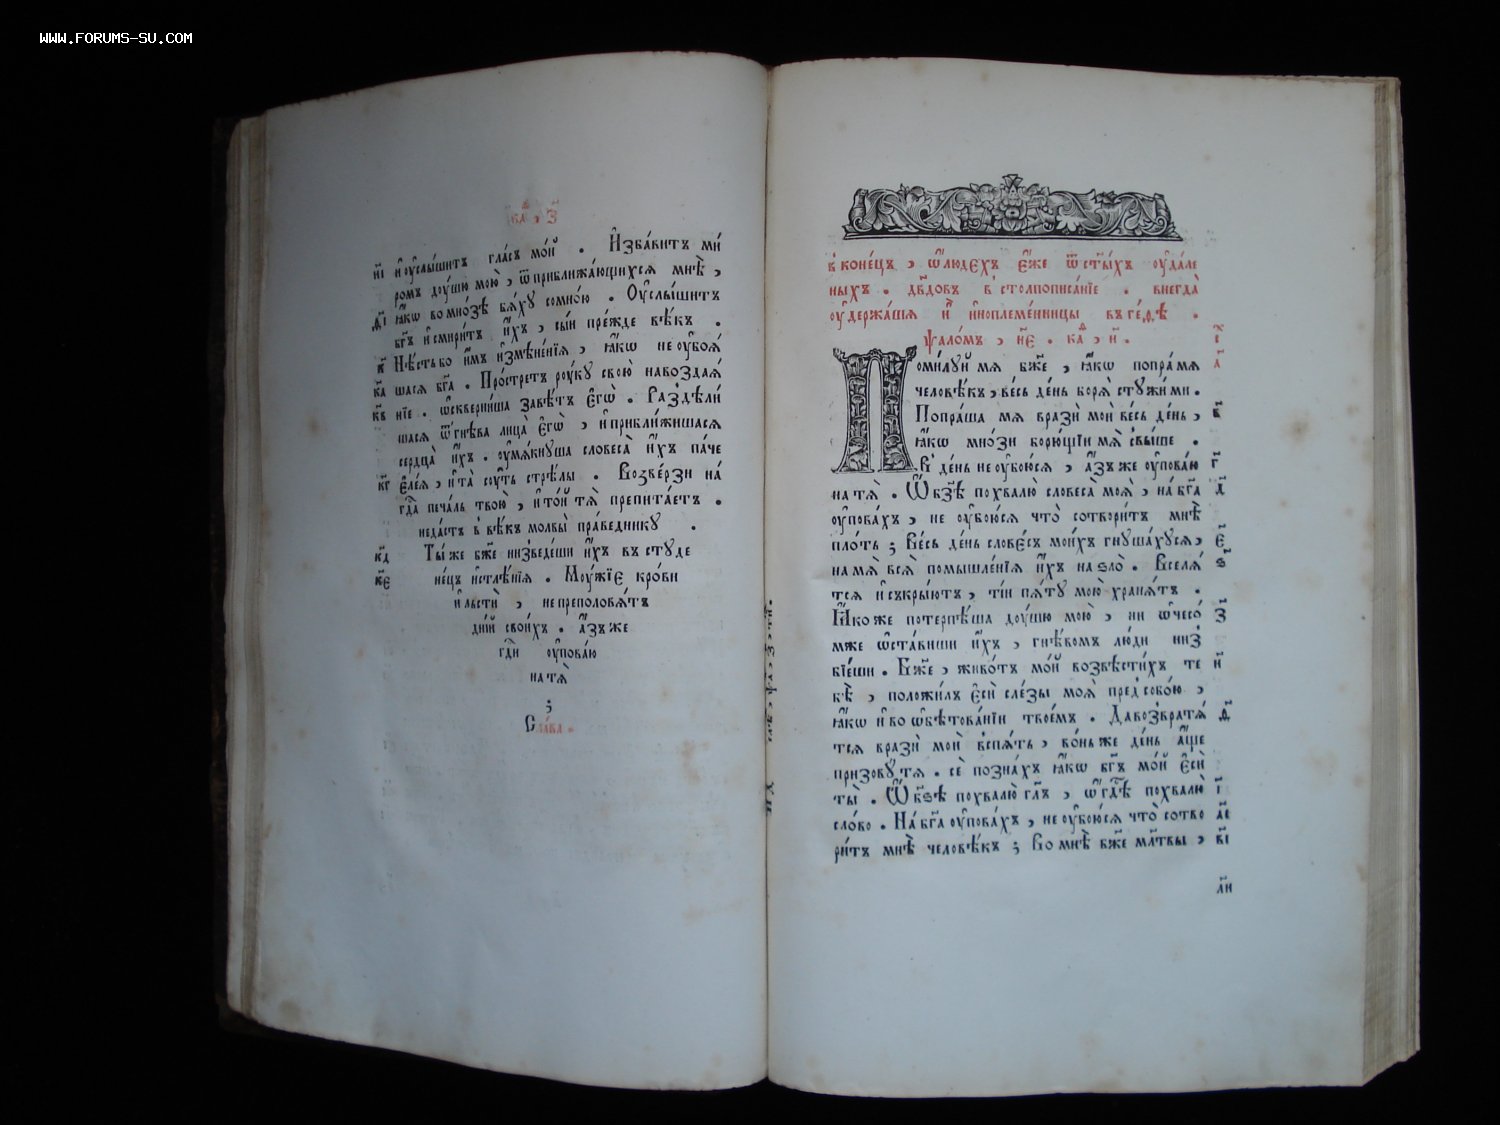 WWW.FORUMS-SU.COM
ка҃ , з҃
и҃і и҆ оу҆слы́шитъ гла́съ мо́й . И҆зба́витъ ми́
ромъ доу́шю мою̀ , ѿ приближа́ющихся мнѣ̀ ,
ѳ҃і ꙗ҆́кѡ во мно́зѣ бѧ́ху со мно́ю . Оу҆слы́шитъ
бг҃ъ и҆ смири́тъ и҆́хъ , сы́й пре́жде вѣ́къ .
к҃ Нѣ́сть бо и҆̀мъ и҆змѣне́нїѧ , ꙗ҆́кѡ не оу҆боѧ́
ка҃ шасѧ бг҃а . Простре́тъ ро́укꙋ свою̀ на возда́ѧ
кв҃ нїе . ѡ҆скверни́ша завѣ́тъ є҆гѡ̀ . Раздѣли́
шасѧ ѿ гнѣ́ва лица̀ є҆гѡ̀ , и҆ прибли́жишасѧ
сердца̀ и҆́хъ . оу҆мѧ́кнуша словеса̀ и҆́хъ па́че
кг҃ є҆ле́ѧ , и҆ та̀ со́уть стрѣ́лы . Возве́рзи на́
гдⷭ҇а печа́ль твою̀ , и҆ то́й тѧ̀ препита́етъ .
неда́стъ в̾ вѣ́къ молвы̀ пра́веднику .
кд҃ Ты́ же бж҃е низведе́ши и҆́хъ въ студе
ке҃ не́цъ и҆стлѣ́нїѧ . Моу́жїе кро́ви
и҆ льстѝ , не преполовѧ́тъ
дні́й свои́хъ . а҆́зъ же
гдⷭ҇и оу҆пова́ю
на тѧ̀
;
Сла́ва .
в̾ коне́цъ , ѡ҆ лю́дехъ є҆́же ѿ ст҃ы́хъ оу҆дале
ныхъ . дв҃дов̾ в̾ столпописа́нїе . внегда̀
оу҆держа́шѧ и҆̀ и҆ноплеме́нницы въ ге́ѳѣ .
ѱало́мъ , н҃е . каⷴ , и҃ .
Поми́луй мѧ бж҃е , ꙗ҆́кѡ попра́ мѧ
человѣ́къ , ве́сь де́нь борѧ̀ стужи́ ми .
в҃ Попра́ша мѧ вразѝ моѝ ве́сь де́нь ,
ꙗ҆́кѡ мно́зи борю́щїи мѧ̀ свы́ше .
г҃ В̾ де́нь не оу҆бою́сѧ , а҆́зъ же оу҆пова́ю
д҃ на тѧ̀ . Ѡ҆ бз҃ѣ похвалю̀ словеса̀ моѧ̀ , на бг҃а
оу҆пова́хъ , не оу҆бою́сѧ что̀ сотвори́тъ мнѣ̀
е҃ пло́ть ; Ве́сь де́нь слове́съ мои́хъ гнуша́хусѧ ,
ѕ҃ на мѧ̀ всѧ̀ помышле́нїѧ и҆́хъ на ѕло̀ . Вселѧ́
тсѧ и҆ съкры́ютъ , ті́и пѧ́ту мою̀ хранѧ́тъ .
з҃ Ꙗ҆́коже потерпѣ́ша доу́шю мою̀ , ни ѡ҆ чесо́
мже ѡ҆ста́виши и҆́хъ , гнѣ́вомъ лю́ди низ̾
и҃ вїе́ши . Бж҃е , живо́тъ мо́й возвѣсти́хъ те
бѣ̀ , положи́лъ є҆сѝ сле́зы моѧ̀ пред̾ собо́ю ,
ѳ҃ ꙗ҆́кѡ и҆ во ѡ҆бѣтова́нїи твое́мъ . Да возвратѧ́
тсѧ вразѝ моѝ вспѧ́ть , во́ньже де́нь а҆́ще
призову́ тѧ . сѐ позна́хъ ꙗ҆́кѡ бг҃ъ мо́й є҆сѝ
і҃ ты̀ . Ѡ҆ бз҃ѣ похвалю̀ гл҃ъ , ѡ҆ гдⷭ҇ѣ похвалю̀
а҃і сло́во . На бг҃а оу҆пова́хъ , не оу҆бою́сѧ что̀ сотво
в҃і ри́тъ мнѣ̀ человѣ́къ ; Во мнѣ̀ бж҃е мл҃твы ,
ли